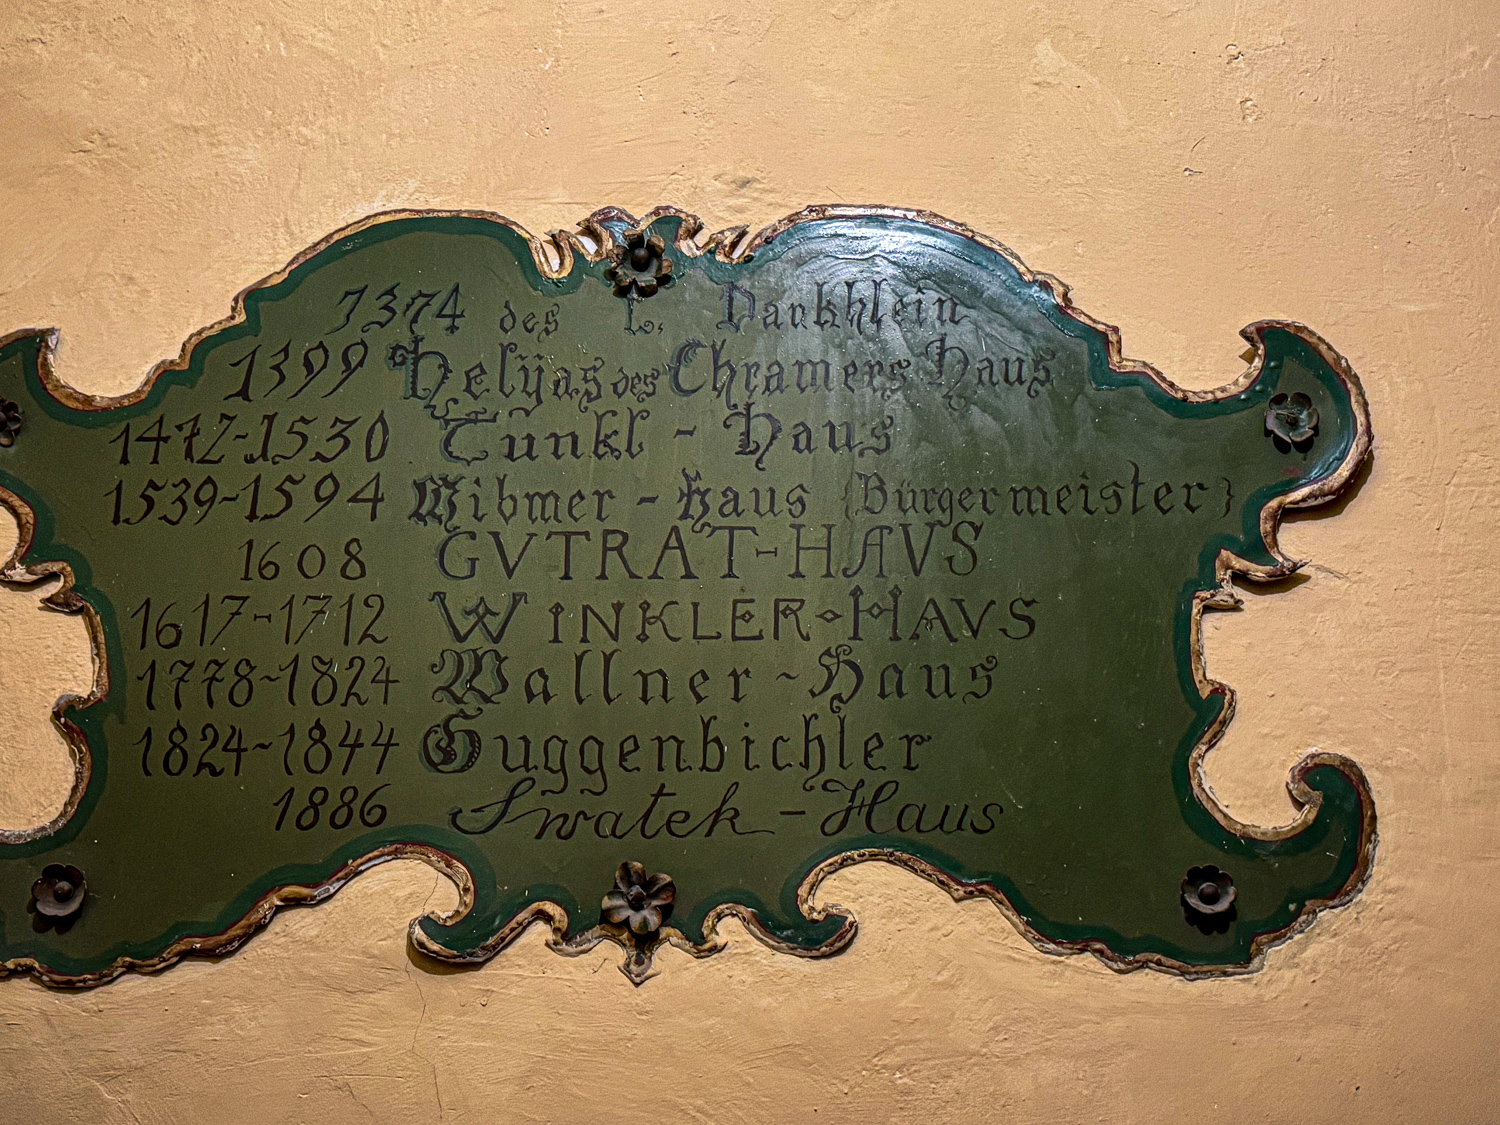 1374 des L. Dankhlein
1399 Helÿas des Chramers Haus
1472-1530 Tunkl - Haus
1539-1594 Wibmer - Haus {Bürgermeister}
1608 GVTRAT-HAVS
1617-1712 WINKLER-HAVS
1778-1824 Wallner-Haus
1824-1844 Guggenbichler
1886 Swatek - Haus